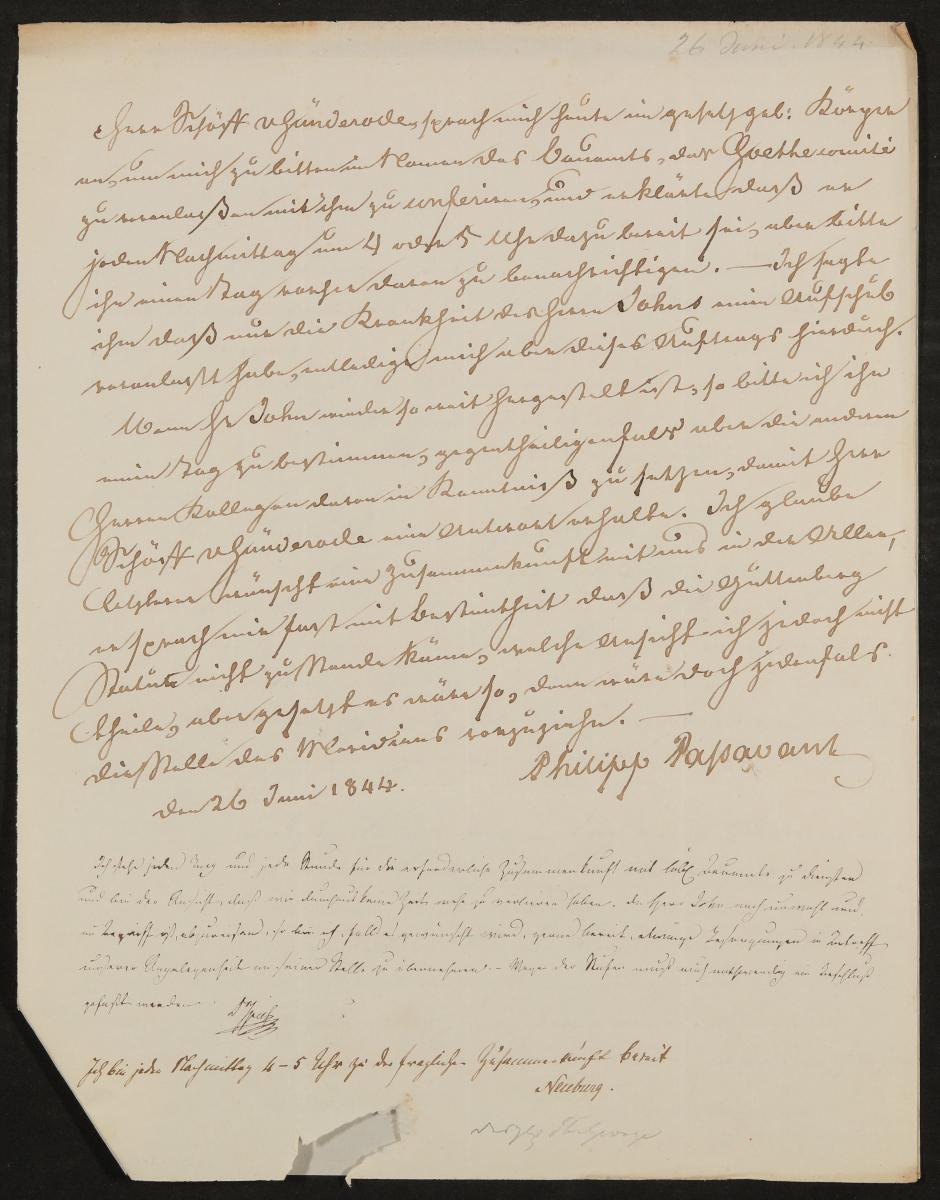 26 Juni. 1844.
Herr Schöff v Günderode, sprach mich heute im gesetzgeb: Körper
an, um mich zu bitten im Namen des Bauamts, das Goethecomité
zu veranlaßen mit ihm zu conferiren, und erklärte daß er
jeden Nachmittag um 4 oder 5 Uhr dazu bereit sei, aber bitte
ihn einen Tag vorher davon zu benachrichtigen. — Ich sagte
ihm daß nur die Krankheit des Herrn John's einen Aufschub
veranlaßt habe, entledige mich aber dieses Auftrags hierdurch.
Wenn Hr John wieder so weit hergestellt ist, so bitte ich ihn
einen Tag zu bestimmen, gegentheiligenfals aber die anderen
Herren Kollegen davon in Kenntniß zu setzen, damit Herr
Schöff v Günderode eine Antwort erhalte. Ich glaube
letzterer wünscht eine Zusammenkunft mit uns in der Allee,
er sprach mir fast mit Bestimtheit daß die Guttenberg
Statue nicht zu Stande käme, welche Ansicht ich jedoch nicht
theile, aber gesetzt es wäre so, dann wäre doch jedenfals
die Stelle des Meridians vorzuziehn. —
Philipp Passavant
den 26 Juni 1844.
Ich stehe jeden Tag und jede Stunde für die erforderliche Zusammenkunft mit löbl. Bauamte zu Diensten
und bin der Ansicht, daß wir durchaus keine Zeit mehr zu verlieren haben. Da Herr John noch unwohl und
im Begriff ist, abzureisen, so bin ich, falls es gewünscht wird, gerne bereit, etwaige Besorgungen in Betreff
unserer Angelegenheit an seiner Stelle zu übernehmen. – Wegen der Stufen muß auch nothwendig ein Beschluß
gefaßt werden.
Ich bin jeden Nachmittag 4–5 Uhr zu der fraglichen Zusammenkunft bereit
Neuburg.